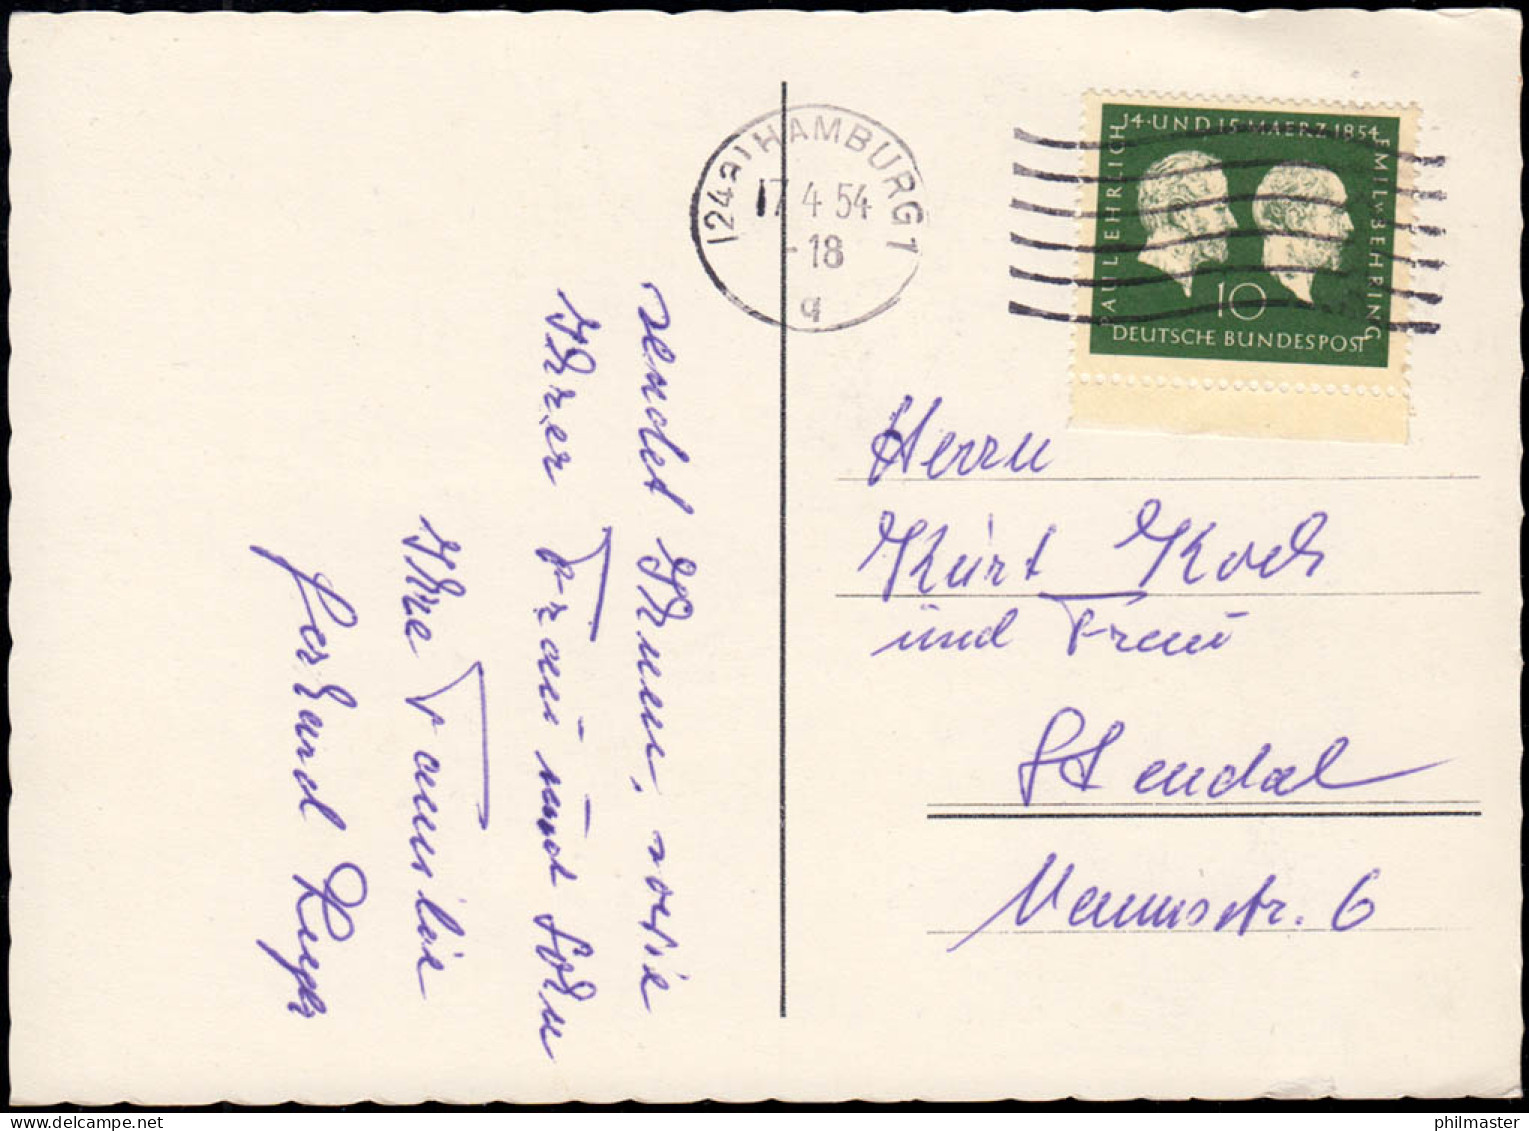 sendet Ihnen, sowie
Ihrer Frau und Sohn
Ihre Familie
Gerhard
(24a) HAMBURG 1
17.4.54
-18
q
14·UND 15·MAERZ 1854
PAUL EHRLICH
EMIL v BEHRING
10
DEUTSCHE BUNDESPOST
Herrn
Kurt Koch
und Frau
Stendal
str. 6
philmaster